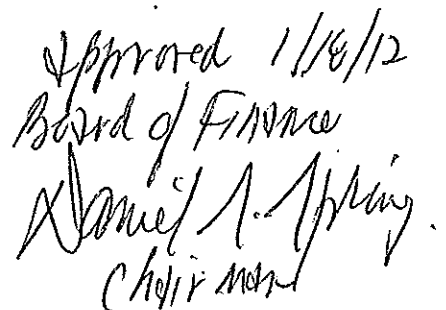 Approved 1/18/12
Board of Finance
Daniel
Chairman